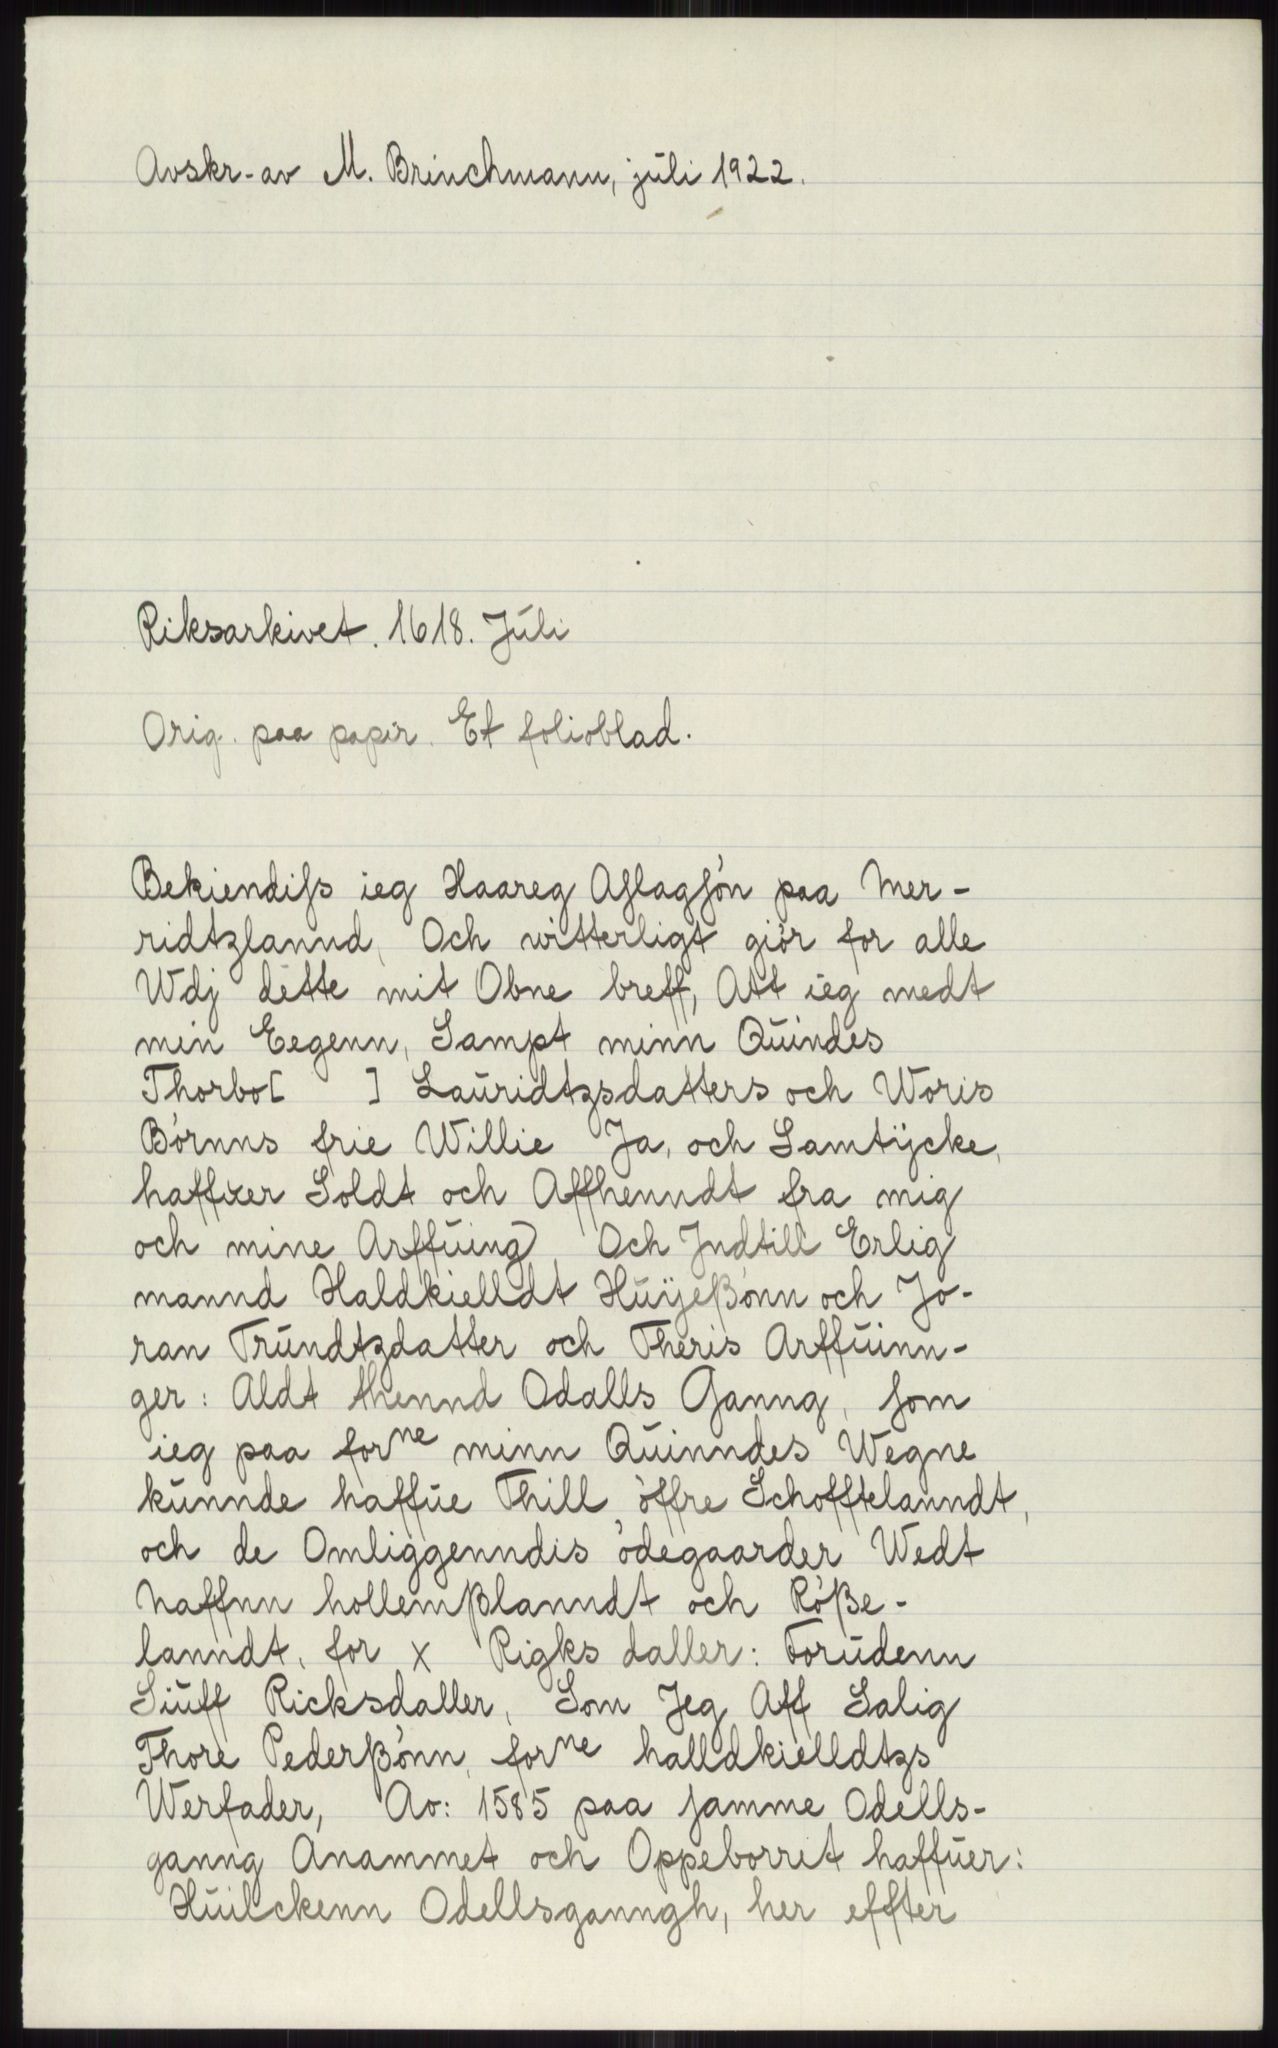 Avskr. av M. Brinchmann, júli 1922.
Riksarkivet. 1618. Júli
Orig. paa papir. Et folioblad.
Bekiendiſs ieg Haareg Aſlagſön paa Mer-
ridtzlannd, Och witterligt giör for alle
Wdj dette mit Obne breff, Att ieg medt
min Eegenn, Sampt minn Qúindes
Thorbo[ ] Laúridtzsdatters och Woris
Börnns frie Willie Ja, och Samtÿcke,
haffúer Soldt och Affhenndt fra mig
och mine Arffúing, Och Jndtill Erlig
mannd Haldkielldt Húÿeßönn och Jo-
ran Trúndtzdatter och Theris Arffúinn-
ger: Aldt thennd Odalls Ganng, ſom
ieg paa forne minn Qúinndes Wegne
kúnnde haffúe Thill öffre Schofftelanndt,
och de Omliggenndis ödegaarder Wedt
Naffnn hollemßlanndt och Röße-
lanndt, for x Rigks daller: Forúdenn
Siúff Ricksdaller, Som Jeg Aff Salig
Thore Pederßönn, forne halldkielldtzs
Werfader, Ao: 1585 paa ſamme Odells-
ganng Anammet och Oppeborrit haffúer:
Húilckenn Odellsganngh, her effter